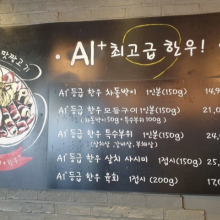 맛짱고기
· AI⁺ 최고급 한우!
AI⁺등급 한우 차돌박이 1인분(150g) 14,9
AI⁺등급 한우 모듬구이 1인분(150g) 21,0
(차돌박이50g+특수부위100g)
AI⁺등급 한우 특수부위 1인분(150g)
(살치살, 갈비살, 부채살)
AI⁺등급 한우 살치 사시미 1접시(150g) 25,
AI⁺등급 한우 육회 1접시 (200g) 17,